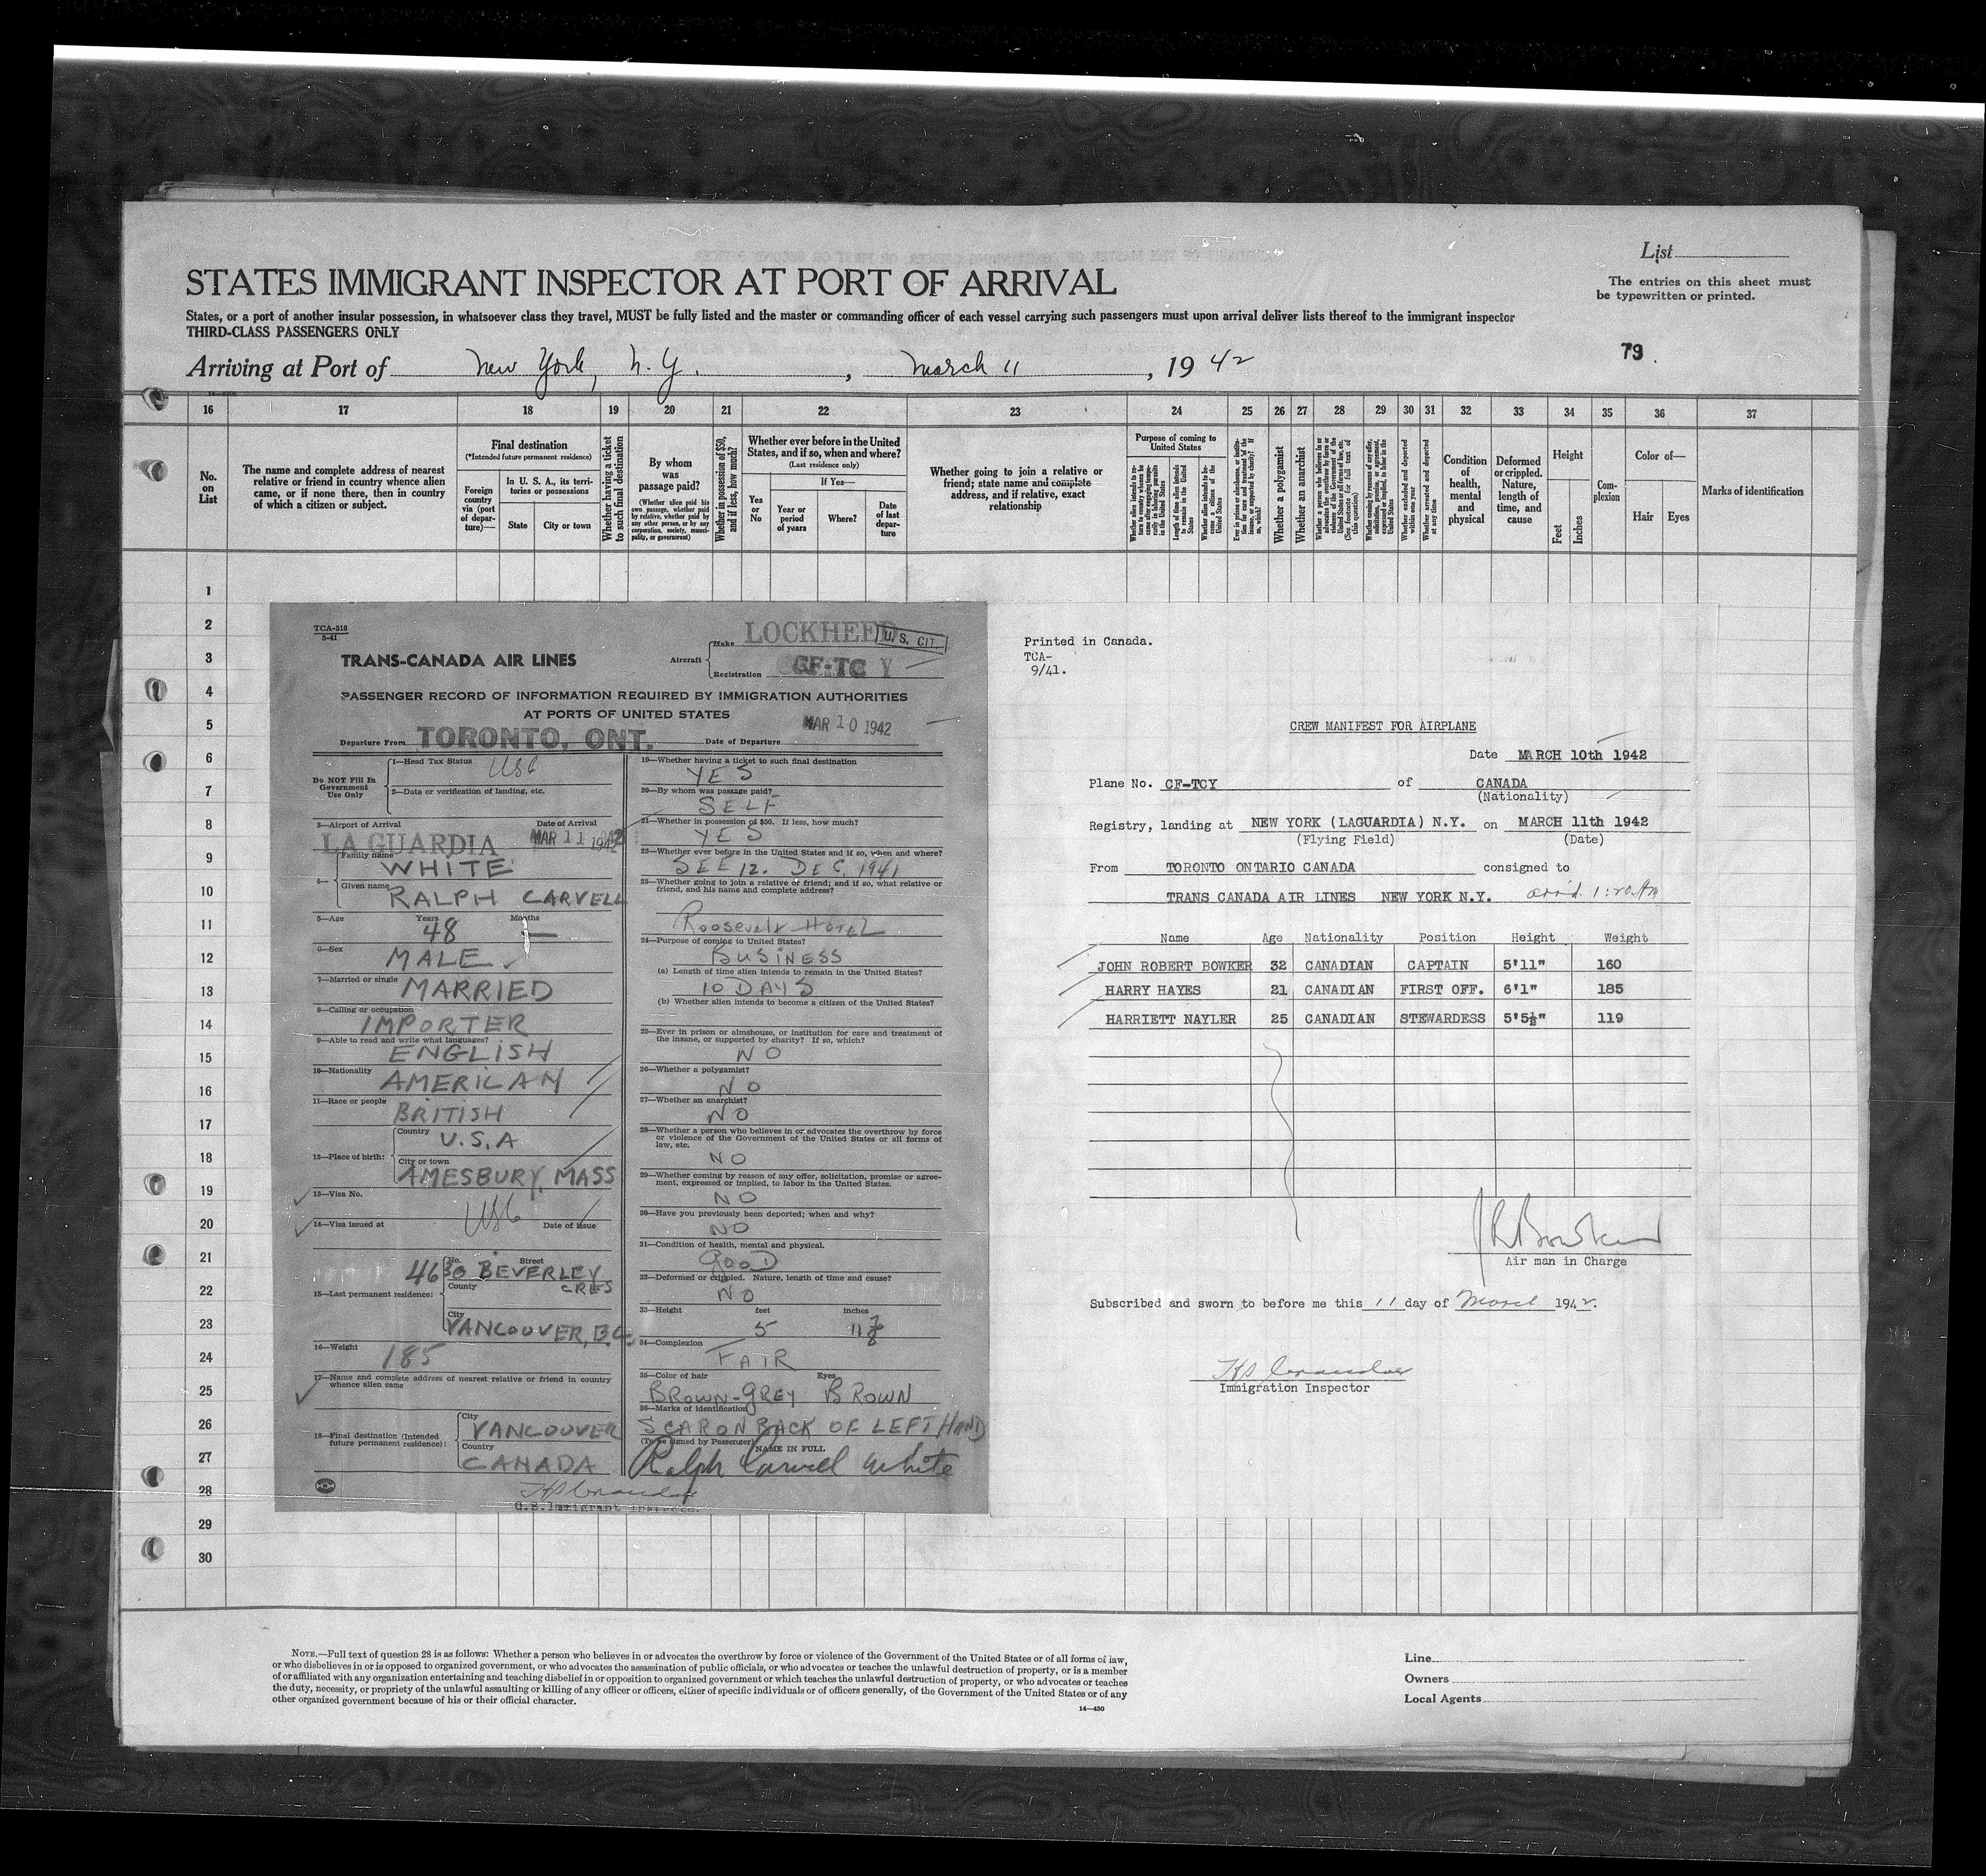 List
The entries on this sheet must
be typewritten or printed.
STATES IMMIGRANT INSPECTOR AT PORT OF ARRIVAL
States, or a port of another insular possession, in whatsoever class they travel, MUST be fully listed and the master or commanding officer of each vessel carrying such passengers must upon arrival deliver lists thereof to the immigrant inspector
THIRD-CLASS PASSENGERS ONLY
79.
Arriving at Port of New York, N. Y., March 11, 1942
16 17 18 19 20 21 22 23 24 25 26 27 28 29 30 31 32 33 34 35 36 37
No. on List
The name and complete address of nearest
relative or friend in country whence alien
came, or if none there, then in country
of which a citizen or subject.
Final destination
(*Intended future permanent residence)
Foreign country via (port of departure)—
In U. S. A., its territories or possessions
State
City or town
Whether having a ticket to such final destination
By whom was passage paid?
(Whether alien paid his own passage, whether paid by relative, whether paid by any other person, or by any corporation, society, municipality, or government)
Whether in possession of $50, and if less, how much?
Whether ever before in the United
States, and if so, when and where?
(Last residence only)
If Yes—
Yes or No
Year or period of years
Where?
Date of last departure
Whether going to join a relative or
friend; state name and complete
address, and if relative, exact
relationship
Purpose of coming to
United States
Length of time alien intends to remain in the United States
Whether alien intends to become a citizen of the United States
Whether a polygamist
Whether an anarchist
Condition of health, mental and physical
Deformed or crippled. Nature, length of time, and cause
Height
Feet
Inches
Complexion
Color of—
Hair
Eyes
Marks of identification
1
2
3
4
5
6
7
8
9
10
11
12
13
14
15
16
17
18
19
20
21
22
23
24
25
26
27
28
29
30
TCA-518
5-41
TRANS-CANADA AIR LINES
Aircraft
Make LOCKHEED
U.S. CIT.
Registration CF-TC Y
PASSENGER RECORD OF INFORMATION REQUIRED BY IMMIGRATION AUTHORITIES
AT PORTS OF UNITED STATES
Departure From TORONTO, ONT. Date of Departure MAR 10 1942
Do NOT Fill In
Government
Use Only
1—Head Tax Status USC
2—Data or verification of landing, etc.
3—Airport of Arrival Date of Arrival
LA GUARDIA MAR 11 1942
4— Family name WHITE
Given name RALPH CARVELL
5—Age Years 48 Months —
6—Sex MALE
7—Married or single MARRIED
8—Calling or occupation
IMPORTER
9—Able to read and write what languages?
ENGLISH
10—Nationality AMERICAN
11—Race or people BRITISH
12—Place of birth: Country U.S.A
City or town AMESBURY, MASS
13—Visa No.
14—Visa issued at USC Date of issue
15—Last permanent residence: No. Street
4630 BEVERLEY CRES
County
City
VANCOUVER, B.C.
16—Weight 185
17—Name and complete address of nearest relative or friend in country
whence alien came
18—Final destination (Intended
future permanent residence):
City VANCOUVER
Country CANADA
19—Whether having a ticket to such final destination
YES
20—By whom was passage paid?
SELF
21—Whether in possession of $50. If less, how much?
YES
22—Whether ever before in the United States and if so, when and where?
SEE 12. DEC. 1941
23—Whether going to join a relative of friend; and if so, what relative or
friend, and his name and complete address?
Roosevelt HOTEL
24—Purpose of coming to United States?
BUSINESS
(a) Length of time alien intends to remain in the United States?
10 DAYS
(b) Whether alien intends to become a citizen of the United States?
25—Ever in prison or almshouse, or institution for care and treatment of
the insane, or supported by charity? If so, which?
NO
26—Whether a polygamist?
NO
27—Whether an anarchist?
NO
28—Whether a person who believes in or advocates the overthrow by force
or violence of the Government of the United States or all forms of
law, etc.
NO
29—Whether coming by reason of any offer, solicitation, promise or agree-
ment, expressed or implied, to labor in the United States.
NO
30—Have you previously been deported; when and why?
NO
31—Condition of health, mental and physical.
GOOD
32—Deformed or crippled. Nature, length of time and cause?
NO
33—Height feet inches
5 11 7/8
34—Complexion FAIR
35—Color of hair Eyes
BROWN-GREY BROWN
36—Marks of identification
SCAR ON BACK OF LEFT HAND
(To be signed by Passenger) NAME IN FULL
Ralph Carvell White
U.S. Immigrant Inspector
Printed in Canada.
TCA-
9/41.
CREW MANIFEST FOR AIRPLANE
Date MARCH 10th 1942
Plane No. CF-TCY of CANADA
(Nationality)
Registry, landing at NEW YORK (LAGUARDIA) N.Y. on MARCH 11th 1942
(Flying Field) (Date)
From TORONTO ONTARIO CANADA consigned to
TRANS CANADA AIR LINES NEW YORK N.Y. arr'd. 1:20 AM
Name Age Nationality Position Height Weight
JOHN ROBERT BOWKER 32 CANADIAN CAPTAIN 5'11" 160
HARRY HAYES 21 CANADIAN FIRST OFF. 6'1" 185
HARRIETT NAYLER 25 CANADIAN STEWARDESS 5'5½" 119
JRBowker
Air man in Charge
Subscribed and sworn to before me this 11 day of March 1942.
Immigration Inspector
NOTE.—Full text of question 28 is as follows: Whether a person who believes in or advocates the overthrow by force or violence of the Government of the United States or of all forms of law,
or who disbelieves in or is opposed to organized government, or who advocates the assassination of public officials, or who advocates or teaches the unlawful destruction of property, or is a member
of or affiliated with any organization entertaining and teaching disbelief in or opposition to organized government or which teaches the unlawful destruction of property, or who advocates or teaches
the duty, necessity, or propriety of the unlawful assaulting or killing of any officer or officers, either of specific individuals or of officers generally, of the Government of the United States or of any
other organized government because of his or their official character.
14—430
Line
Owners
Local Agents